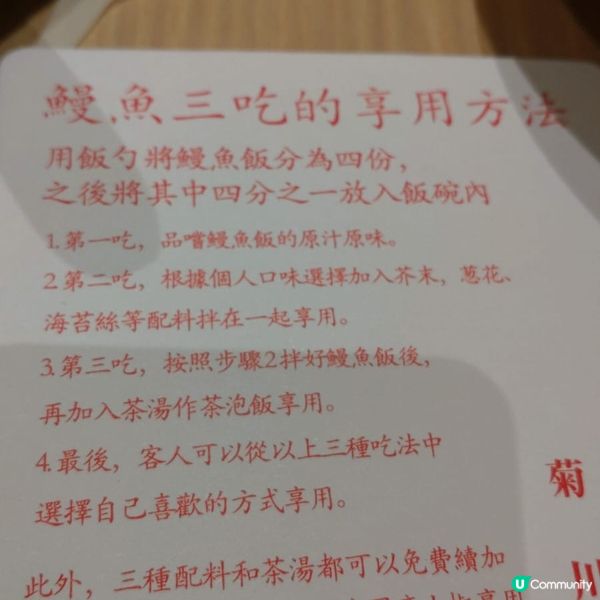 鰻魚三吃的享用方法
用飯勺將鰻魚飯分為四份，
之後將其中四分之一放入飯碗內
1.第一吃，品嚐鰻魚飯的原汁原味。
2.第二吃，根據個人口味選擇加入芥末，蔥花、
海苔絲等配料拌在一起享用。
3.第三吃，按照步驟2拌好鰻魚飯後，
再加入茶湯作茶泡飯享用。
4.最後，客人可以從以上三種吃法中
選擇自己喜歡的方式享用。
此外，三種配料和茶湯都可以免費續加
菊
川
U Community